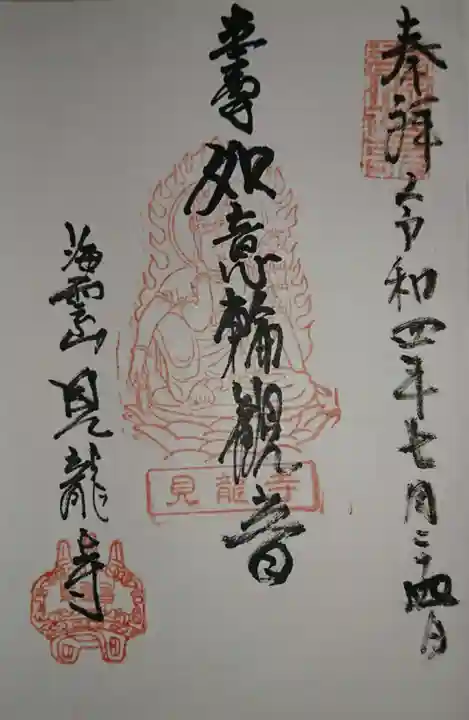 奉拝 令和四年七月二十四日
尊 如意輪観音
見龍寺
海雲山 見龍寺